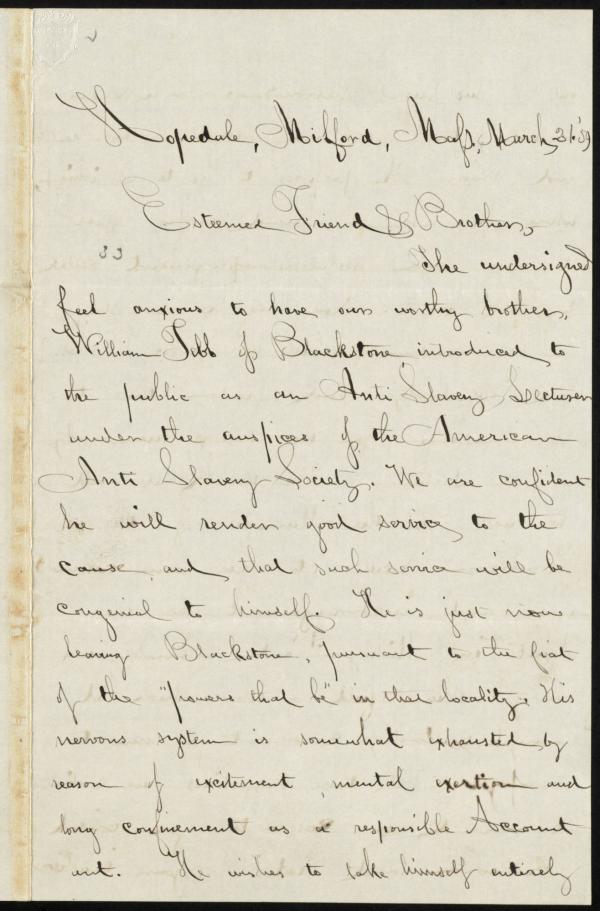 Hopedale, Milford, Mass, March 31. '59
Esteemed Friend & Brother,
33
The undersigned
feel anxious to have our worthy brother,
William Tebb of Blackstone, introduced to
the public as an Anti Slavery Lecturer
under the auspices of the American
Anti Slavery Society. We are confident
he will render good service to the
cause, and that such service will be
congenial to himself. He is just now
leaving Blackstone, pursuant to the fiat
of the "powers that be" in that locality. His
nervous system is somewhat exhausted by
reason of excitement, mental exertion and
long confinement as a responsible Account
ant. He wishes to take himself entirely